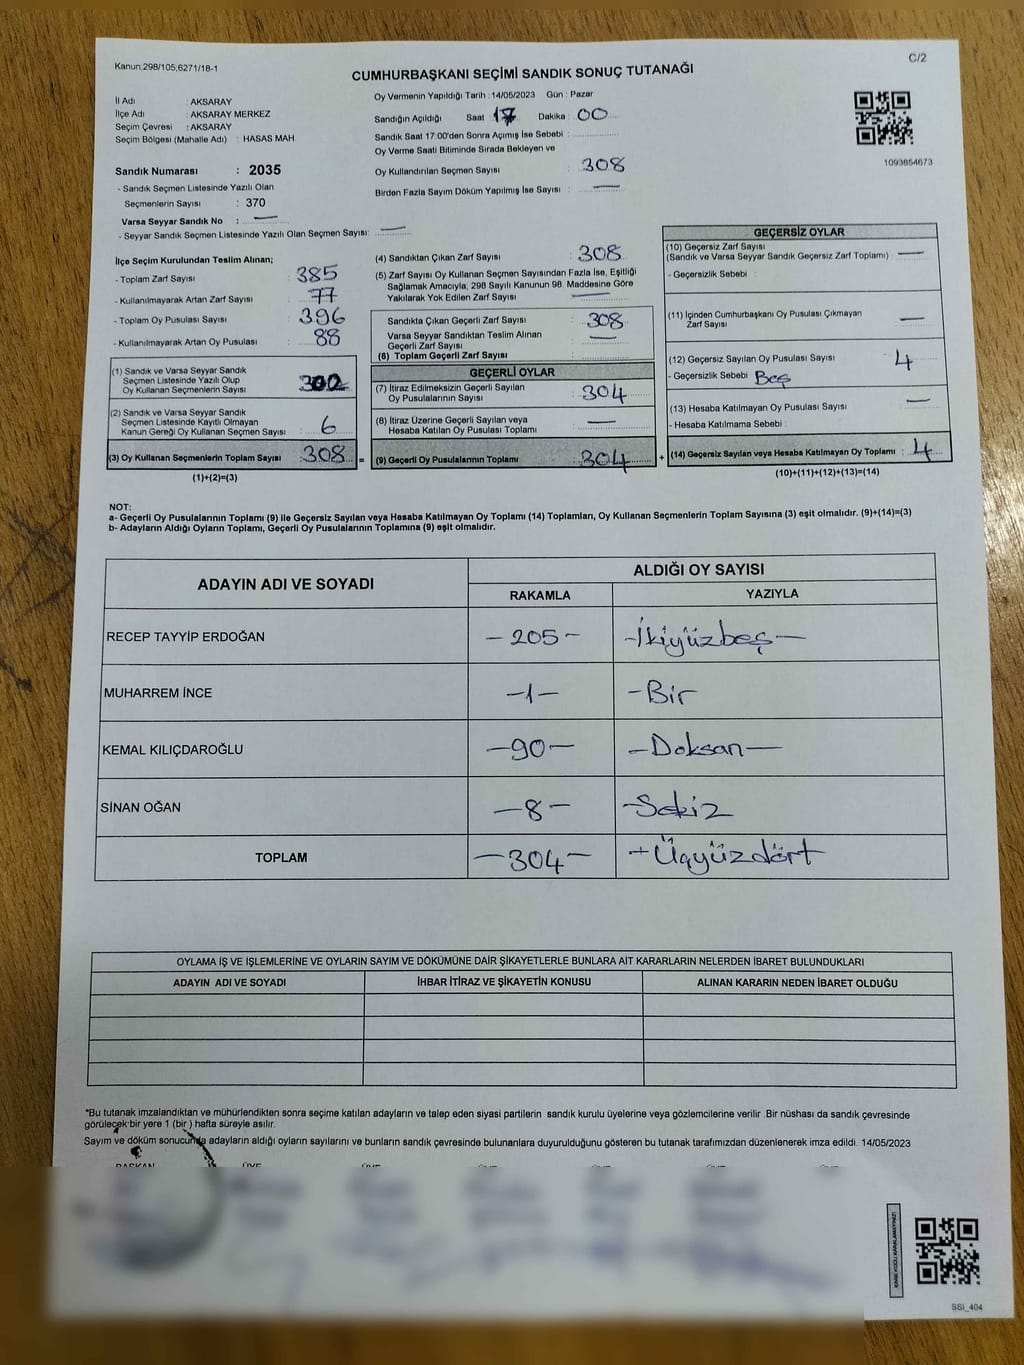 Kanun;298/105,6271/18-1
C/2
CUMHURBAŞKANI SEÇİMİ SANDIK SONUÇ TUTANAĞI
İl Adı : AKSARAY
İlçe Adı : AKSARAY MERKEZ
Seçim Çevresi : AKSARAY
Seçim Bölgesi (Mahalle Adı) : HASAS MAH.
Sandık Numarası : 2035
- Sandık Seçmen Listesinde Yazılı Olan
Seçmenlerin Sayısı : 370
Varsa Seyyar Sandık No : —
- Seyyar Sandık Seçmen Listesinde Yazılı Olan Seçmen Sayısı: —
Oy Vermenin Yapıldığı Tarih : 14/05/2023 Gün : Pazar
Sandığın Açıldığı Saat : 17 Dakika : 00
Sandık Saat 17:00'den Sonra Açımış İse Sebebi :
Oy Verme Saati Bitiminde Sırada Bekleyen ve
Oy Kullandırılan Seçmen Sayısı : 308
Birden Fazla Sayım Döküm Yapılmış İse Sayısı : —
1093854673
İlçe Seçim Kurulundan Teslim Alınan;
- Toplam Zarf Sayısı : 385
- Kullanılmayarak Artan Zarf Sayısı : 77
- Toplam Oy Pusulası Sayısı : 396
- Kullanılmayarak Artan Oy Pusulası : 88
(1) Sandık ve Varsa Seyyar Sandık
Seçmen Listesinde Yazılı Olup
Oy Kullanan Seçmenlerin Sayısı : 302
(2) Sandık ve Varsa Seyyar Sandık
Seçmen Listesinde Kayıtlı Olmayan
Kanun Gereği Oy Kullanan Seçmen Sayısı : 6
(3) Oy Kullanan Seçmenlerin Toplam Sayısı : 308 =
(1)+(2)=(3)
(4) Sandıktan Çıkan Zarf Sayısı : 308
(5) Zarf Sayısı Oy Kullanan Seçmen Sayısından Fazla İse, Eşitliği
Sağlamak Amacıyla, 298 Sayılı Kanunun 98. Maddesine Göre
Yakılarak Yok Edilen Zarf Sayısı : —
Sandıkta Çıkan Geçerli Zarf Sayısı : 308
Varsa Seyyar Sandıktan Teslim Alınan
Geçerli Zarf Sayısı : —
(6) Toplam Geçerli Zarf Sayısı :
GEÇERLİ OYLAR
(7) İtiraz Edilmeksizin Geçerli Sayılan
Oy Pusulalarının Sayısı : 304
(8) İtiraz Üzerine Geçerli Sayılan veya
Hesaba Katılan Oy Pusulası Toplamı : —
(9) Geçerli Oy Pusulalarının Toplamı : 304 +
GEÇERSİZ OYLAR
(10) Geçersiz Zarf Sayısı
(Sandık ve Varsa Seyyar Sandık Geçersiz Zarf Toplamı) : —
- Geçersizlik Sebebi :
(11) İçinden Cumhurbaşkanı Oy Pusulası Çıkmayan
Zarf Sayısı : —
(12) Geçersiz Sayılan Oy Pusulası Sayısı : 4
- Geçersizlik Sebebi : Boş
(13) Hesaba Katılmayan Oy Pusulası Sayısı : —
- Hesaba Katılmama Sebebi :
(14) Geçersiz Sayılan veya Hesaba Katılmayan Oy Toplamı : 4
(10)+(11)+(12)+(13)=(14)
NOT:
a- Geçerli Oy Pusulalarının Toplamı (9) ile Geçersiz Sayılan veya Hesaba Katılmayan Oy Toplamı (14) Toplamları, Oy Kullanan Seçmenlerin Toplam Sayısına (3) eşit olmalıdır. (9)+(14)=(3)
b- Adayların Aldığı Oyların Toplamı, Geçerli Oy Pusulalarının Toplamına (9) eşit olmalıdır.
ADAYIN ADI VE SOYADI ALDIĞI OY SAYISI
RAKAMLA YAZIYLA
RECEP TAYYİP ERDOĞAN —205— —İkiyüzbeş—
MUHARREM İNCE —1— —Bir
KEMAL KILIÇDAROĞLU —90— —Doksan—
SİNAN OĞAN —8— —Sekiz
TOPLAM —304— —Üçyüzdört
OYLAMA İŞ VE İŞLEMLERİNE VE OYLARIN SAYIM VE DÖKÜMÜNE DAİR ŞİKAYETLERLE BUNLARA AİT KARARLARIN NELERDEN İBARET BULUNDUKLARI
ADAYIN ADI VE SOYADI İHBAR İTİRAZ VE ŞİKAYETİN KONUSU ALINAN KARARIN NEDEN İBARET OLDUĞU
*Bu tutanak imzalandıktan ve mühürlendikten sonra seçime katılan adayların ve talep eden siyasi partilerin sandık kurulu üyelerine veya gözlemcilerine verilir .Bir nüshası da sandık çevresinde
görülecek bir yere 1 (bir ) hafta süreyle asılır.
Sayım ve döküm sonucunda adayların aldığı oyların sayılarını ve bunların sandık çevresinde bulunanlara duyurulduğunu gösteren bu tutanak tarafımızdan düzenlenerek imza edildi. 14/05/2023
BAŞKAN ÜYE ÜYE
SSI_404